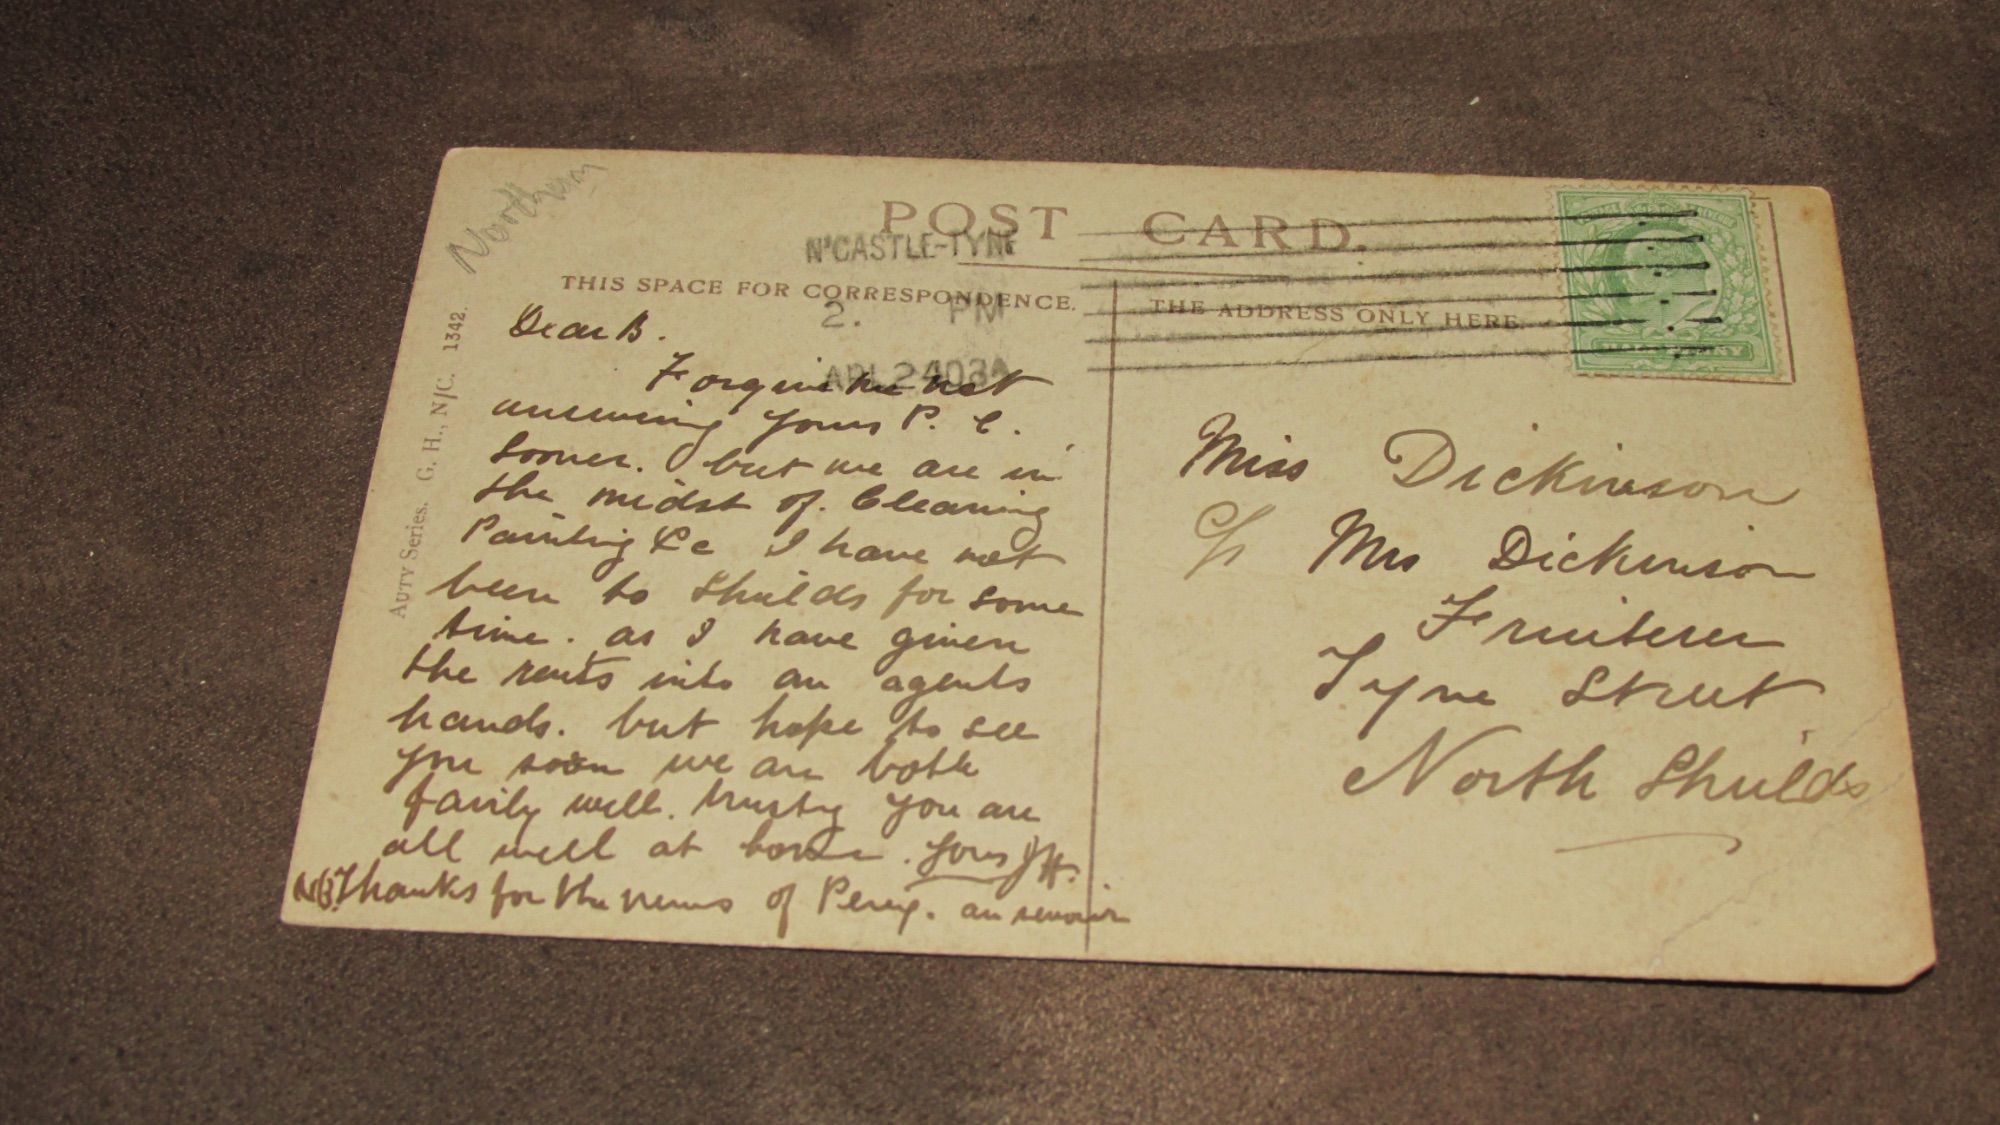 Northern
POST CARD.
N'CASTLE-TYNE
THIS SPACE FOR CORRESPONDENCE.
THE ADDRESS ONLY HERE.
2. PM
APL 24 03
HALFPENNY
AUTY Series. G. H., N/C. 1342.
Dear B.
Forgive me not
answering yours P. C.
sooner. but we are in
the midst of. Cleaning
Painting &c I have not
been to Shields for some
time. as I have given
the rents into an agents
hands. but hope to see
you soon we are both
fairly well. trusting you are
all well at home. Yours
NB. Thanks for the news of Percy. au revoir
Miss Dickinson
c/o Mrs Dickinson
Fruiterer
Tyne Street
North Shields